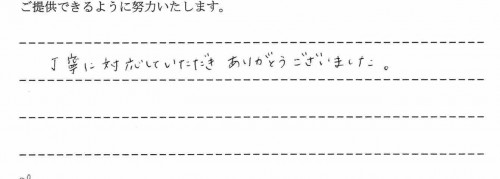 ご提供できるように努力いたします。
丁寧に対応していただき ありがとうございました。